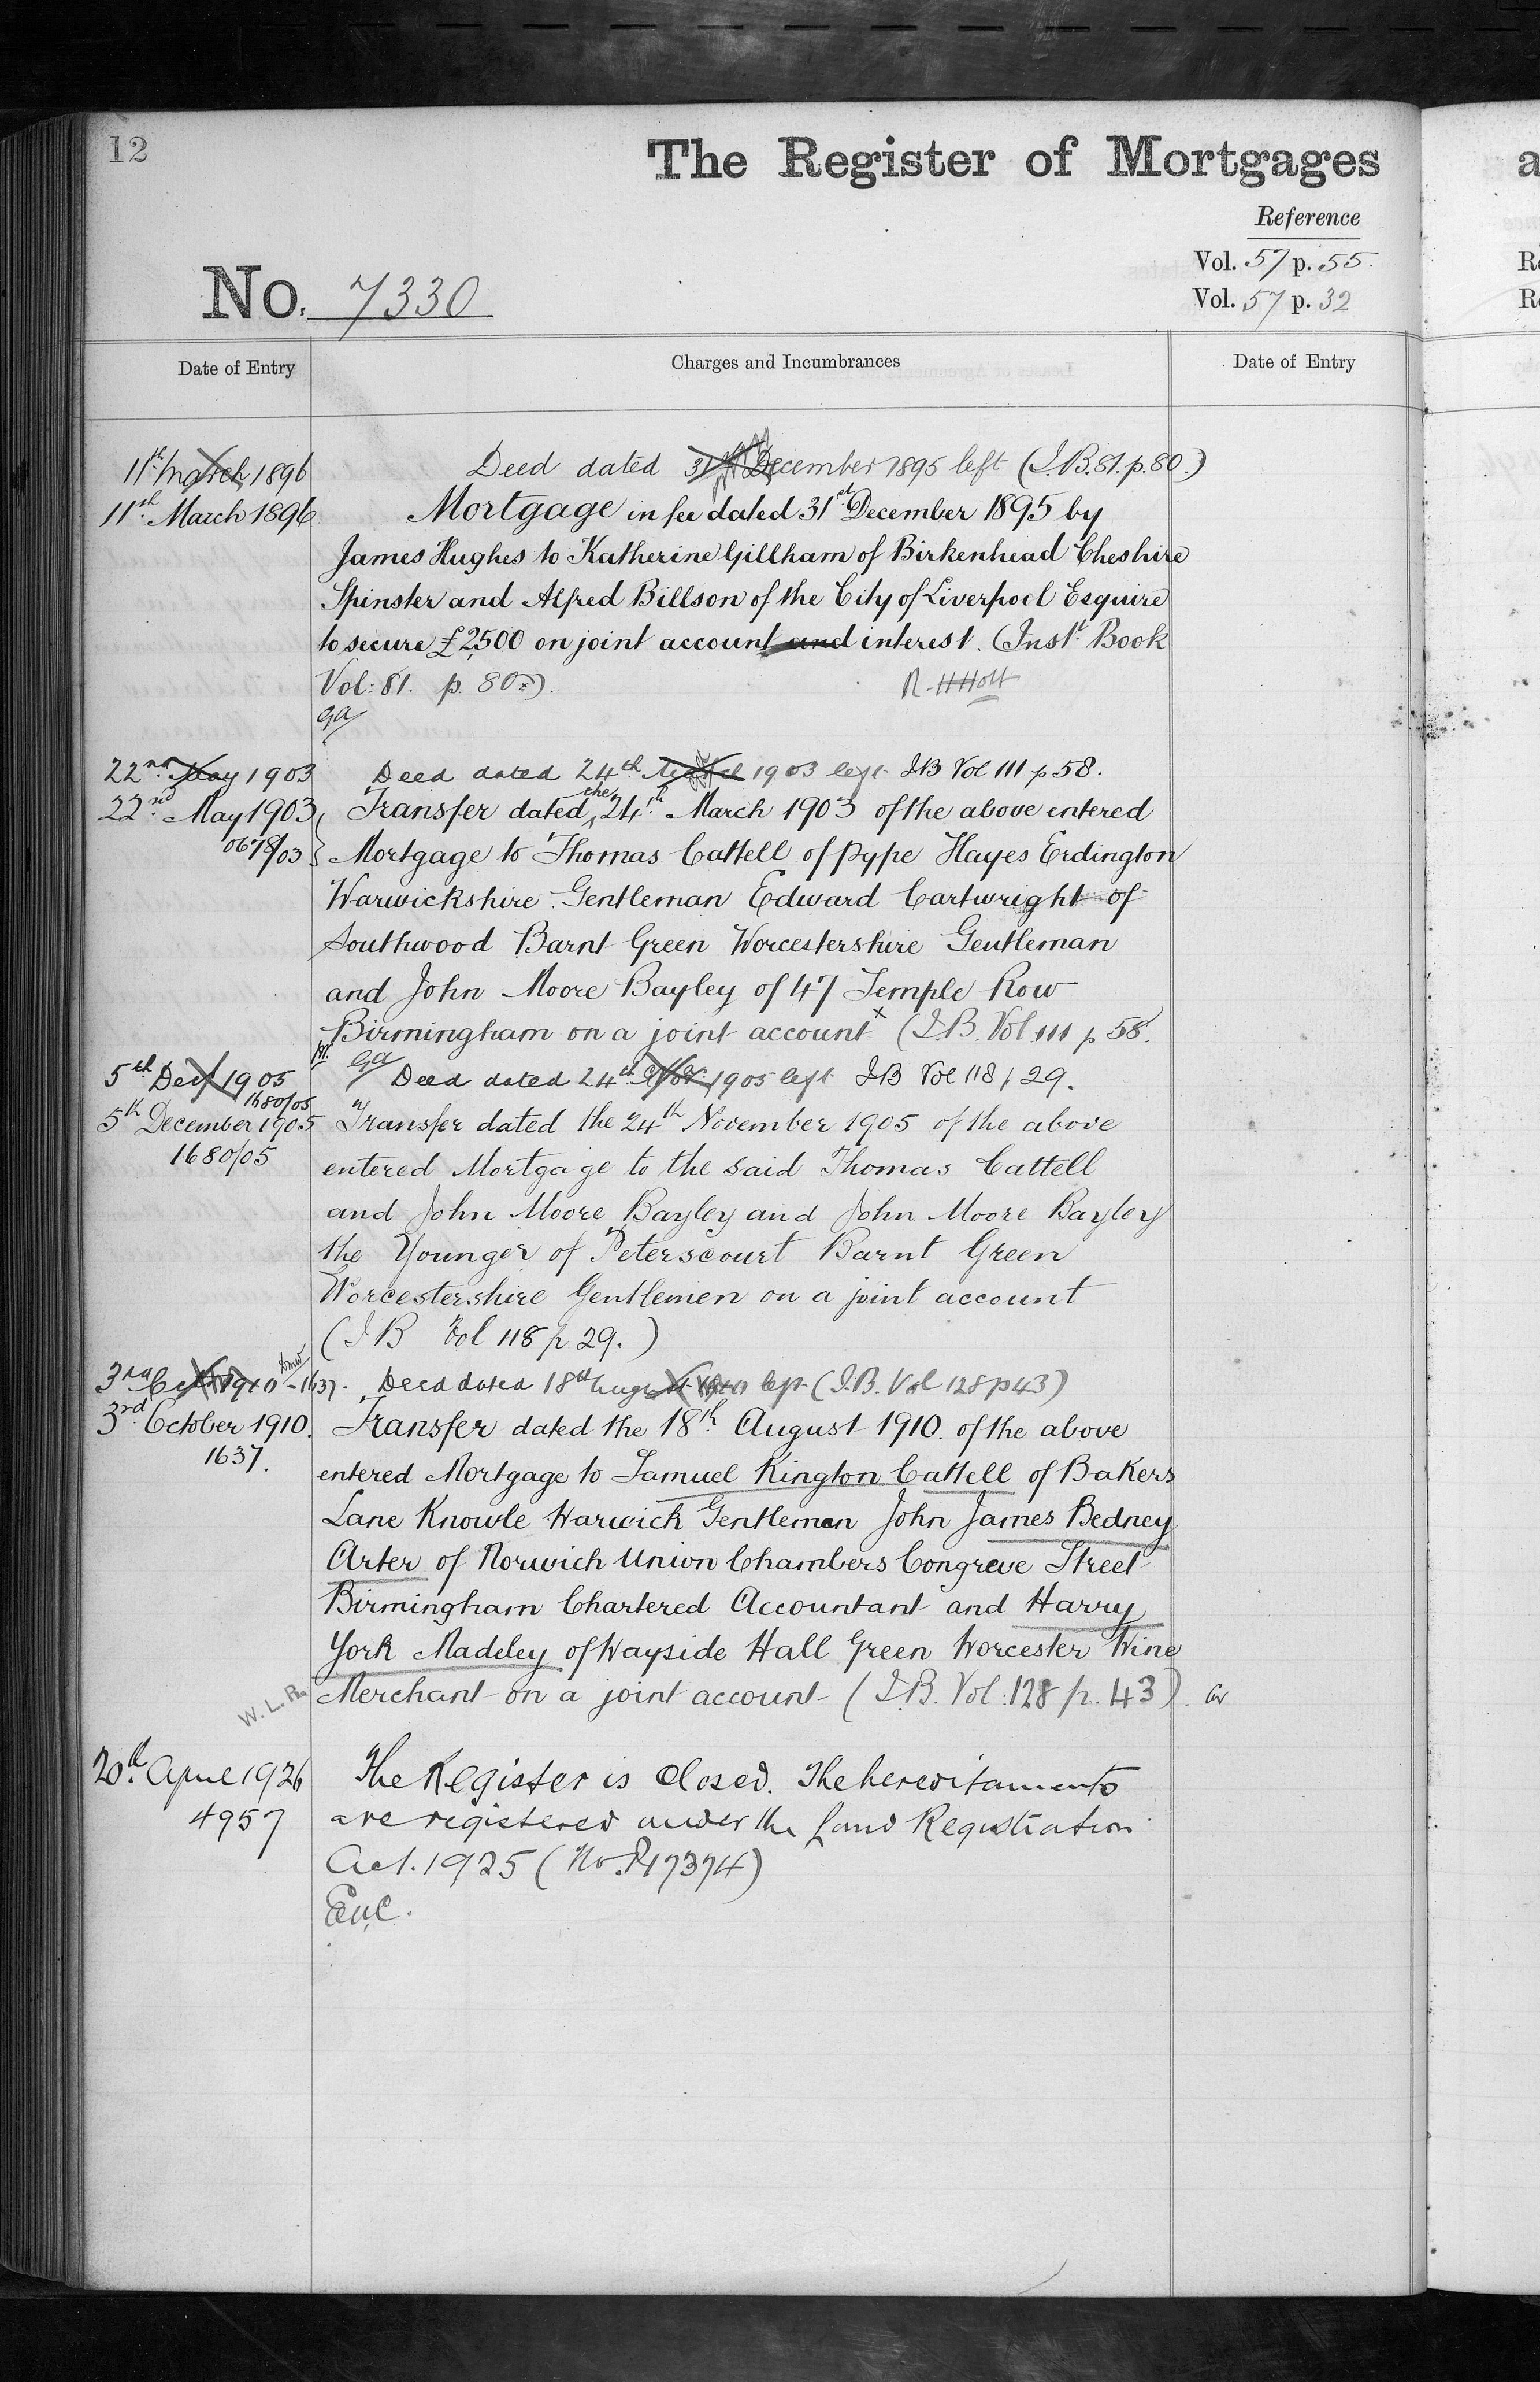 12
The Register of Mortgages
Reference
Vol. 57 p. 55.
Vol. 57 p. 32
No. 7330
Date of Entry
Charges and Incumbrances
Date of Entry
11th March 1896 Deed dated 31st December 1895 left (I.B. 81. p. 80.)
11th March 1896 Mortgage in fee dated 31st December 1895 by
James Hughes to Katherine Gillham of Birkenhead Cheshire
Spinster and Alfred Billson of the City of Liverpool Esquire
to secure £2,500 on joint account and interest. (Inst. Book
Vol: 81. p. 80.) R. H Holt
GA
22nd May 1903 Deed dated 24th March 1903 left IB Vol 111 p 58.
22nd May 1903 Transfer dated the 24th March 1903 of the above entered
0678/03 Mortgage to Thomas Cattell of Pype Hayes Erdington
Warwickshire Gentleman Edward Cartwright of
Southwood Barnt Green Worcestershire Gentleman
and John Moore Bayley of 47 Temple Row
Birmingham on a joint account x (I.B. Vol. 111 p 58.
GA
5th Decr 1905 1680/05 Deed dated 24th Nov. 1905 left IB Vol 118 p 29.
5th December 1905 Transfer dated the 24th November 1905 of the above
1680/05 entered Mortgage to the said Thomas Cattell
and John Moore Bayley and John Moore Bayley
the Younger of Peterscourt Barnt Green
Worcestershire Gentlemen on a joint account
(IB Vol 118 p 29.)
3rd Oct 1910 - 1637. Deed dated 18th August 1910 left (I.B. Vol 128 p 43)
3rd October 1910. Transfer dated the 18th August 1910 of the above
1637. entered Mortgage to Samuel Kington Cattell of Bakers
Lane Knowle Warwick Gentleman John James Bedney
Arter of Norwich Union Chambers Congreve Street
Birmingham Chartered Accountant and Harry
York Madeley of Wayside Hall Green Worcester Wine
W.L.R. Merchant on a joint account (I.B. Vol: 128 p. 43).
20th April 1926 The Register is closed. The hereditaments
4957 are registered under the Land Registration
Act. 1925 (No. P17374)